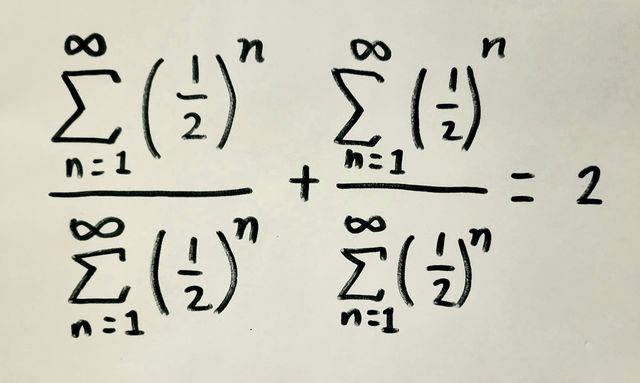 \frac{\sum_{n=1}^{\infty} \left(\frac{1}{2}\right)^n}{\sum_{n=1}^{\infty} \left(\frac{1}{2}\right)^n} + \frac{\sum_{n=1}^{\infty} \left(\frac{1}{2}\right)^n}{\sum_{n=1}^{\infty} \left(\frac{1}{2}\right)^n} = 2